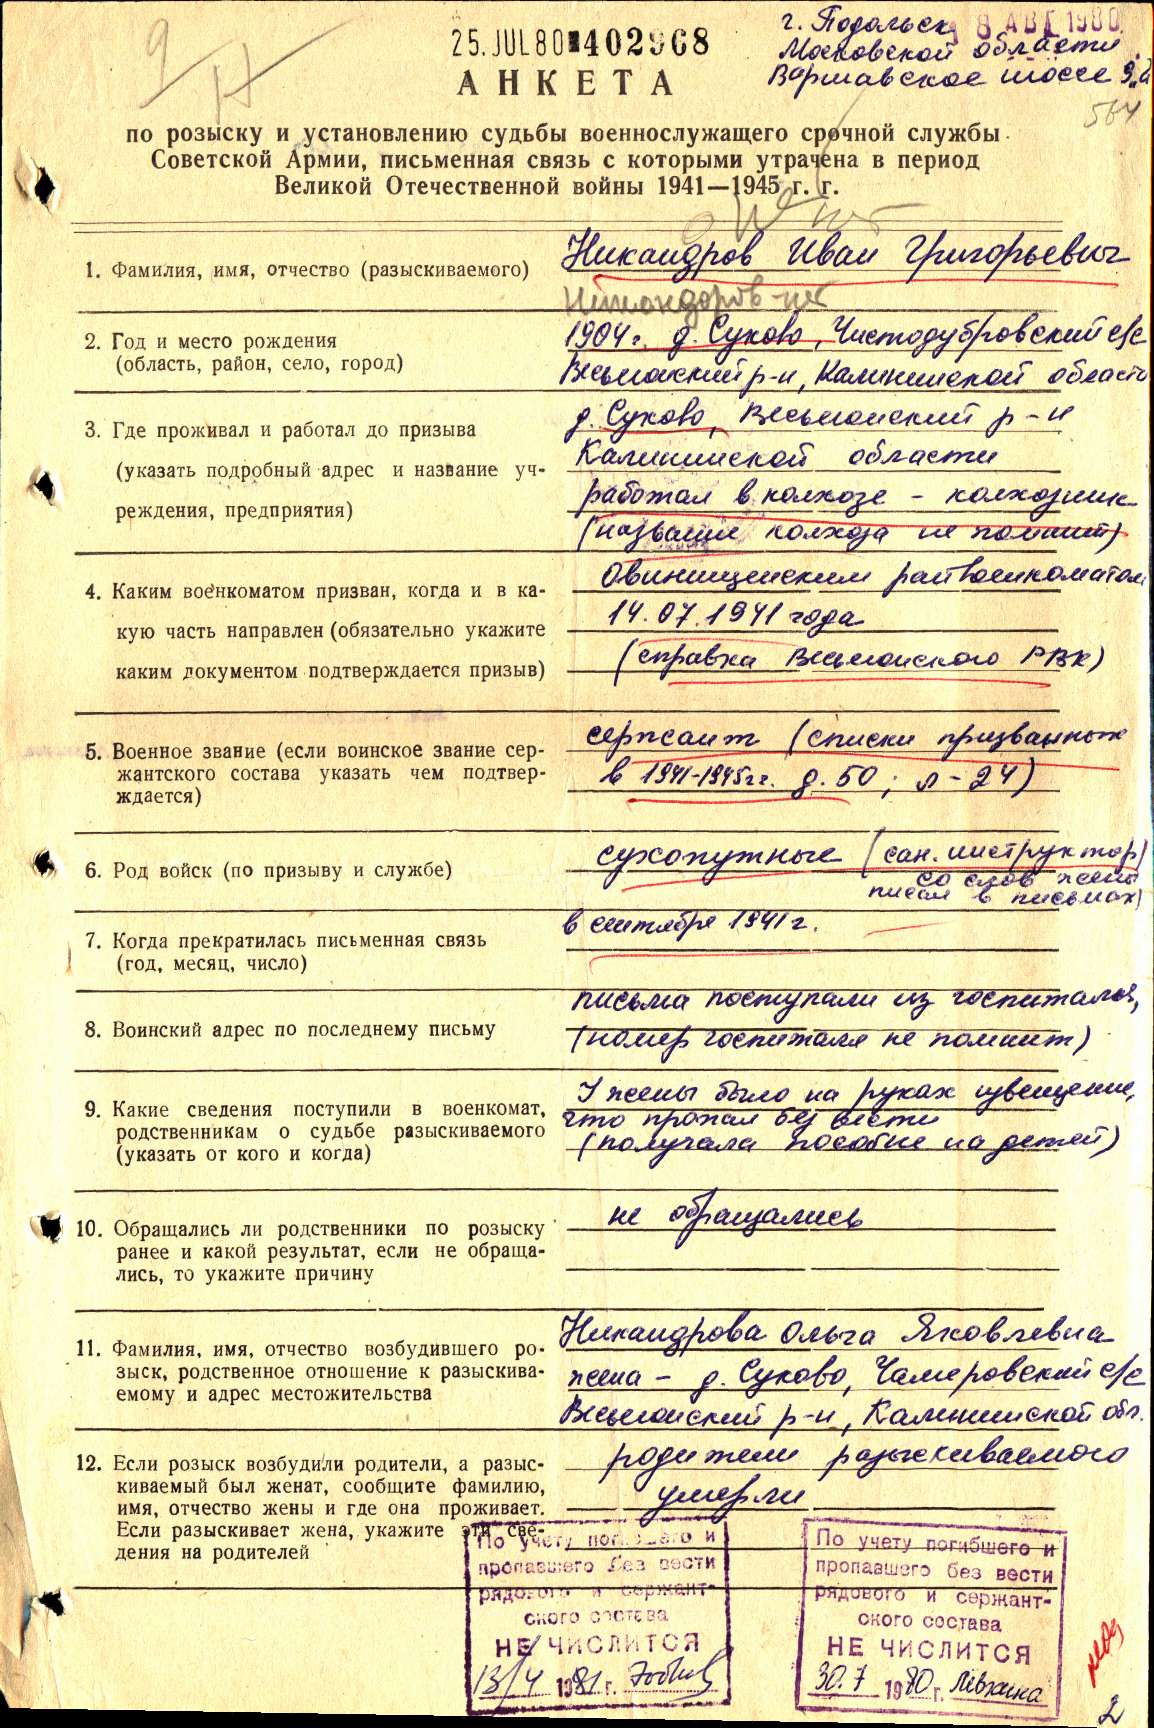 25. JUL 80 ■ 402968
г. Подольск
8 АВГ 1980
Московской области
Варшавское шоссе 9 "а"
АНКЕТА
564
по розыску и установлению судьбы военнослужащего срочной службы
Советской Армии, письменная связь с которыми утрачена в период
Великой Отечественной войны 1941—1945 г. г.
нет
1. Фамилия, имя, отчество (разыскиваемого)
Никандров Иван Григорьевич
нет
2. Год и место рождения
(область, район, село, город)
1904 г. д. Суково, Чистодубровский с/с
Весьегонский р-н, Калининской области
3. Где проживал и работал до призыва
(указать подробный адрес и название уч-
реждения, предприятия)
д. Суково, Весьегонский р-н
Калининской области
работал в колхозе - колхозник
(название колхоза не помнит)
4. Каким военкоматом призван, когда и в ка-
кую часть направлен (обязательно укажите
каким документом подтверждается призыв)
Овинищенским райвоенкоматом
14.07.1941 года
(справка Весьегонского РВК)
5. Военное звание (если воинское звание сер-
жантского состава указать чем подтвер-
ждается)
сержант (списки призванных
в 1941-1945 г.г. д. 50; л - 24)
6. Род войск (по призыву и службе)
сухопутные (сан. инструктор)
со слов жены
писал в письмах)
7. Когда прекратилась письменная связь
(год, месяц, число)
в сентябре 1941 г.
8. Воинский адрес по последнему письму
письма поступали из госпиталя,
(номер госпиталя не помнит)
9. Какие сведения поступили в военкомат,
родственникам о судьбе разыскиваемого
(указать от кого и когда)
У жены было на руках извещение,
что пропал без вести
(получала пособие на детей)
10. Обращались ли родственники по розыску
ранее и какой результат, если не обраща-
лись, то укажите причину
не обращались
11. Фамилия, имя, отчество возбудившего ро-
зыск, родственное отношение к разыскива-
емому и адрес местожительства
Никандрова Ольга Яковлевна
жена - д. Суково, Чамеровский с/с
Весьегонский р-н, Калининской обл.
12. Если розыск возбудили родители, а разыс-
киваемый был женат, сообщите фамилию,
имя, отчество жены и где она проживает.
Если разыскивает жена, укажите эти све-
дения на родителей
родители разыскиваемого
умерли
По учету погибшего и
пропавшего без вести
рядового и сержант-
ского состава
НЕ ЧИСЛИТСЯ
13/4 1981 г.
По учету погибшего и
пропавшего без вести
рядового и сержант-
ского состава
НЕ ЧИСЛИТСЯ
30.7 1980 г.
2